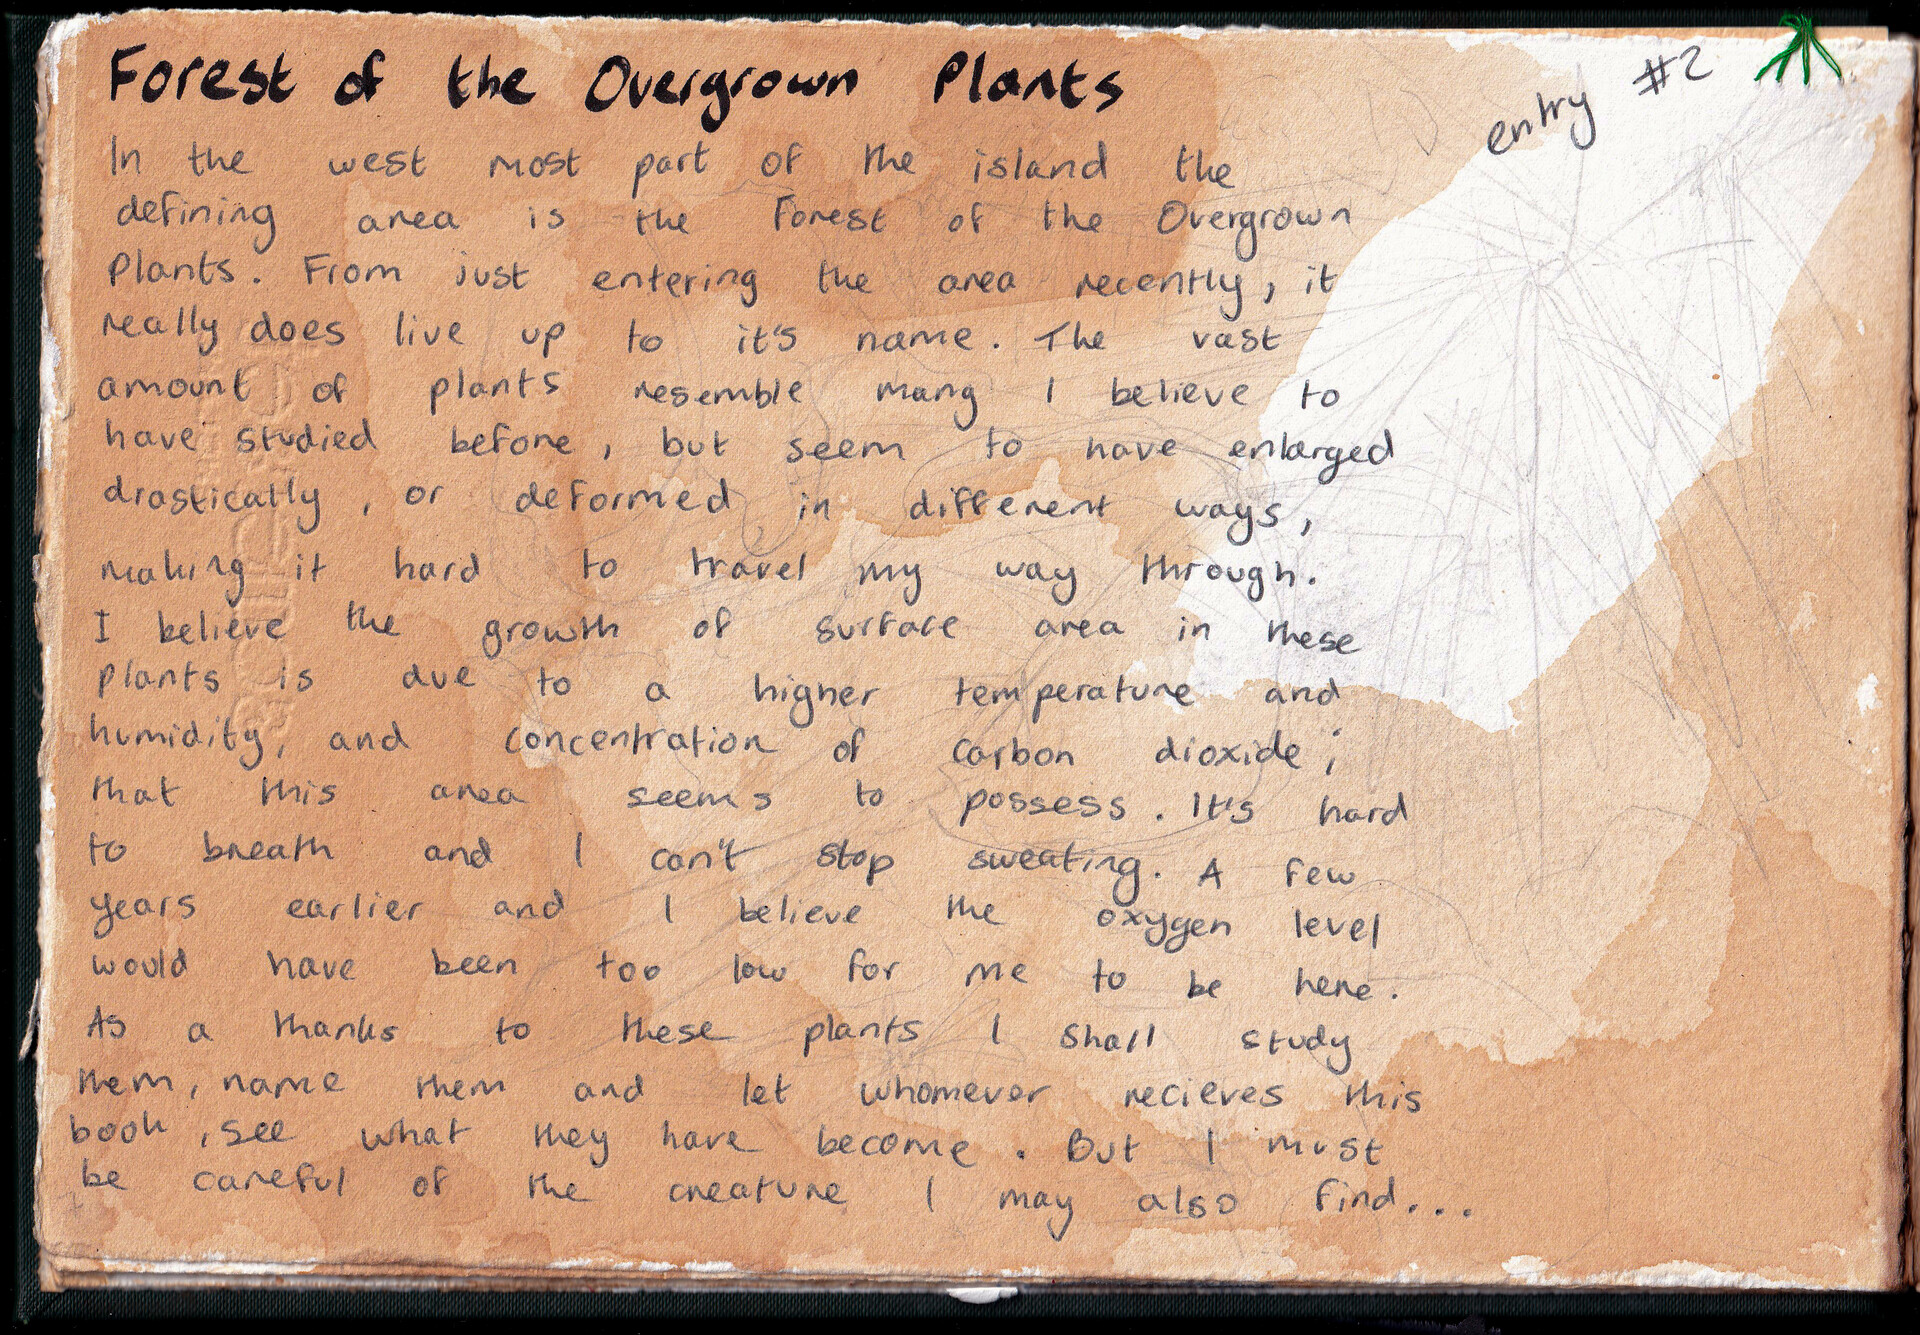 Forest of the Overgrown Plants
entry #2
In the west most part of the island the
defining area is the Forest of the Overgrown
Plants. From just entering the area recently, it
really does live up to it's name. The vast
amount of plants resemble many I believe to
have studied before, but seem to have enlarged
drastically, or deformed in different ways,
making it hard to travel my way through.
I believe the growth of surface area in these
plants is due to a higher temperature and
humidity, and concentration of carbon dioxide;
that this area seems to possess. It's hard
to breath and I can't stop sweating. A few
years earlier and I believe the oxygen level
would have been too low for me to be here.
As a thanks to these plants I shall study
them, name them and let whomever recieves this
book, see what they have become. But I must
be careful of the creature I may also find...